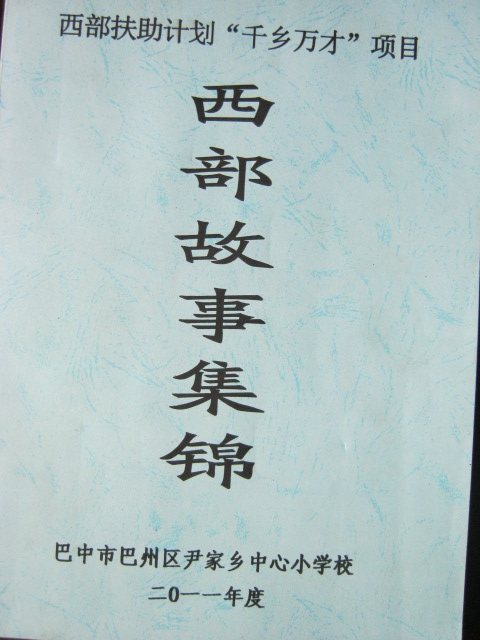 西部扶助计划“千乡万才”项目
西部故事集锦
巴中市巴州区尹家乡中心小学校
二0一一年度